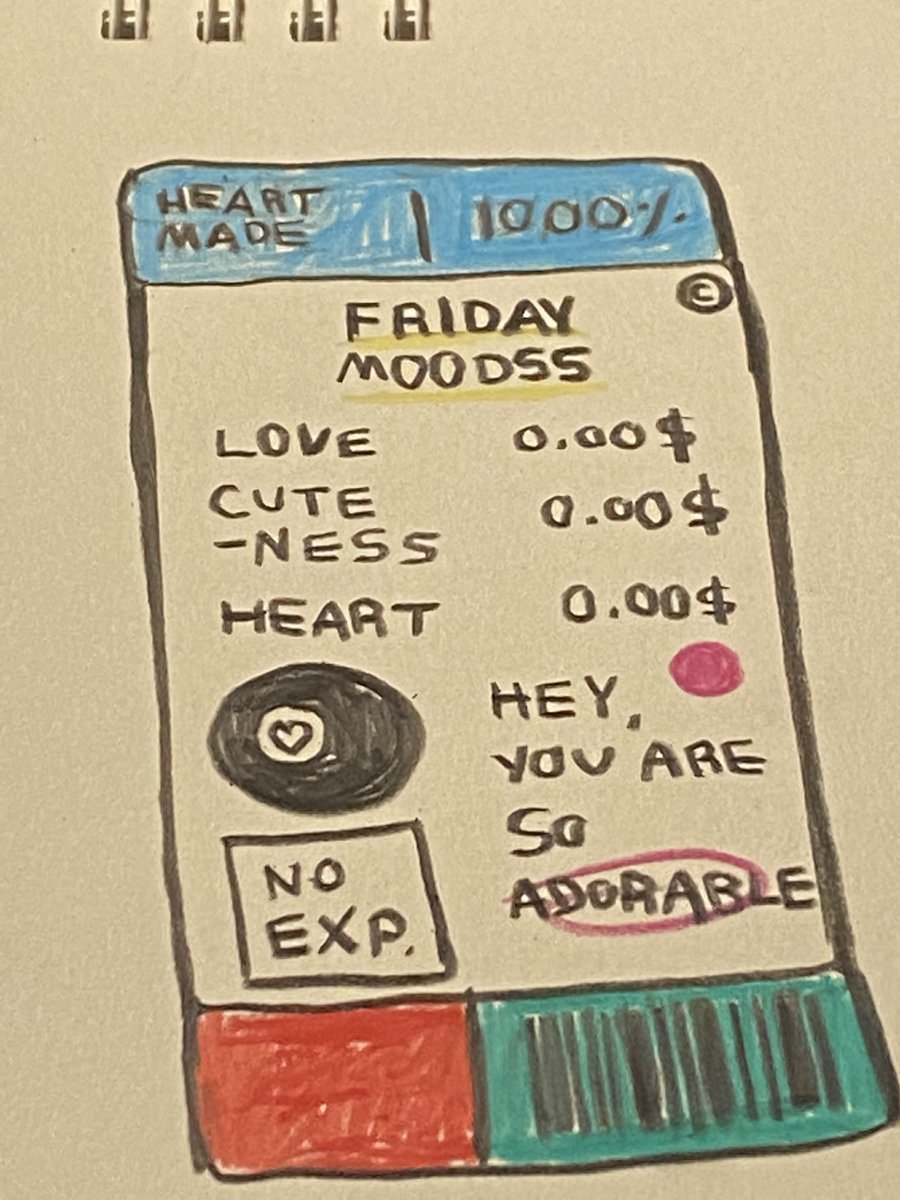 HEART MADE | 1000%
©
FRIDAY
MOODSS
LOVE 0.00$
CUTE
-NESS 0.00$
HEART 0.00$
HEY,
YOU ARE
SO
ADORABLE
NO
EXP.